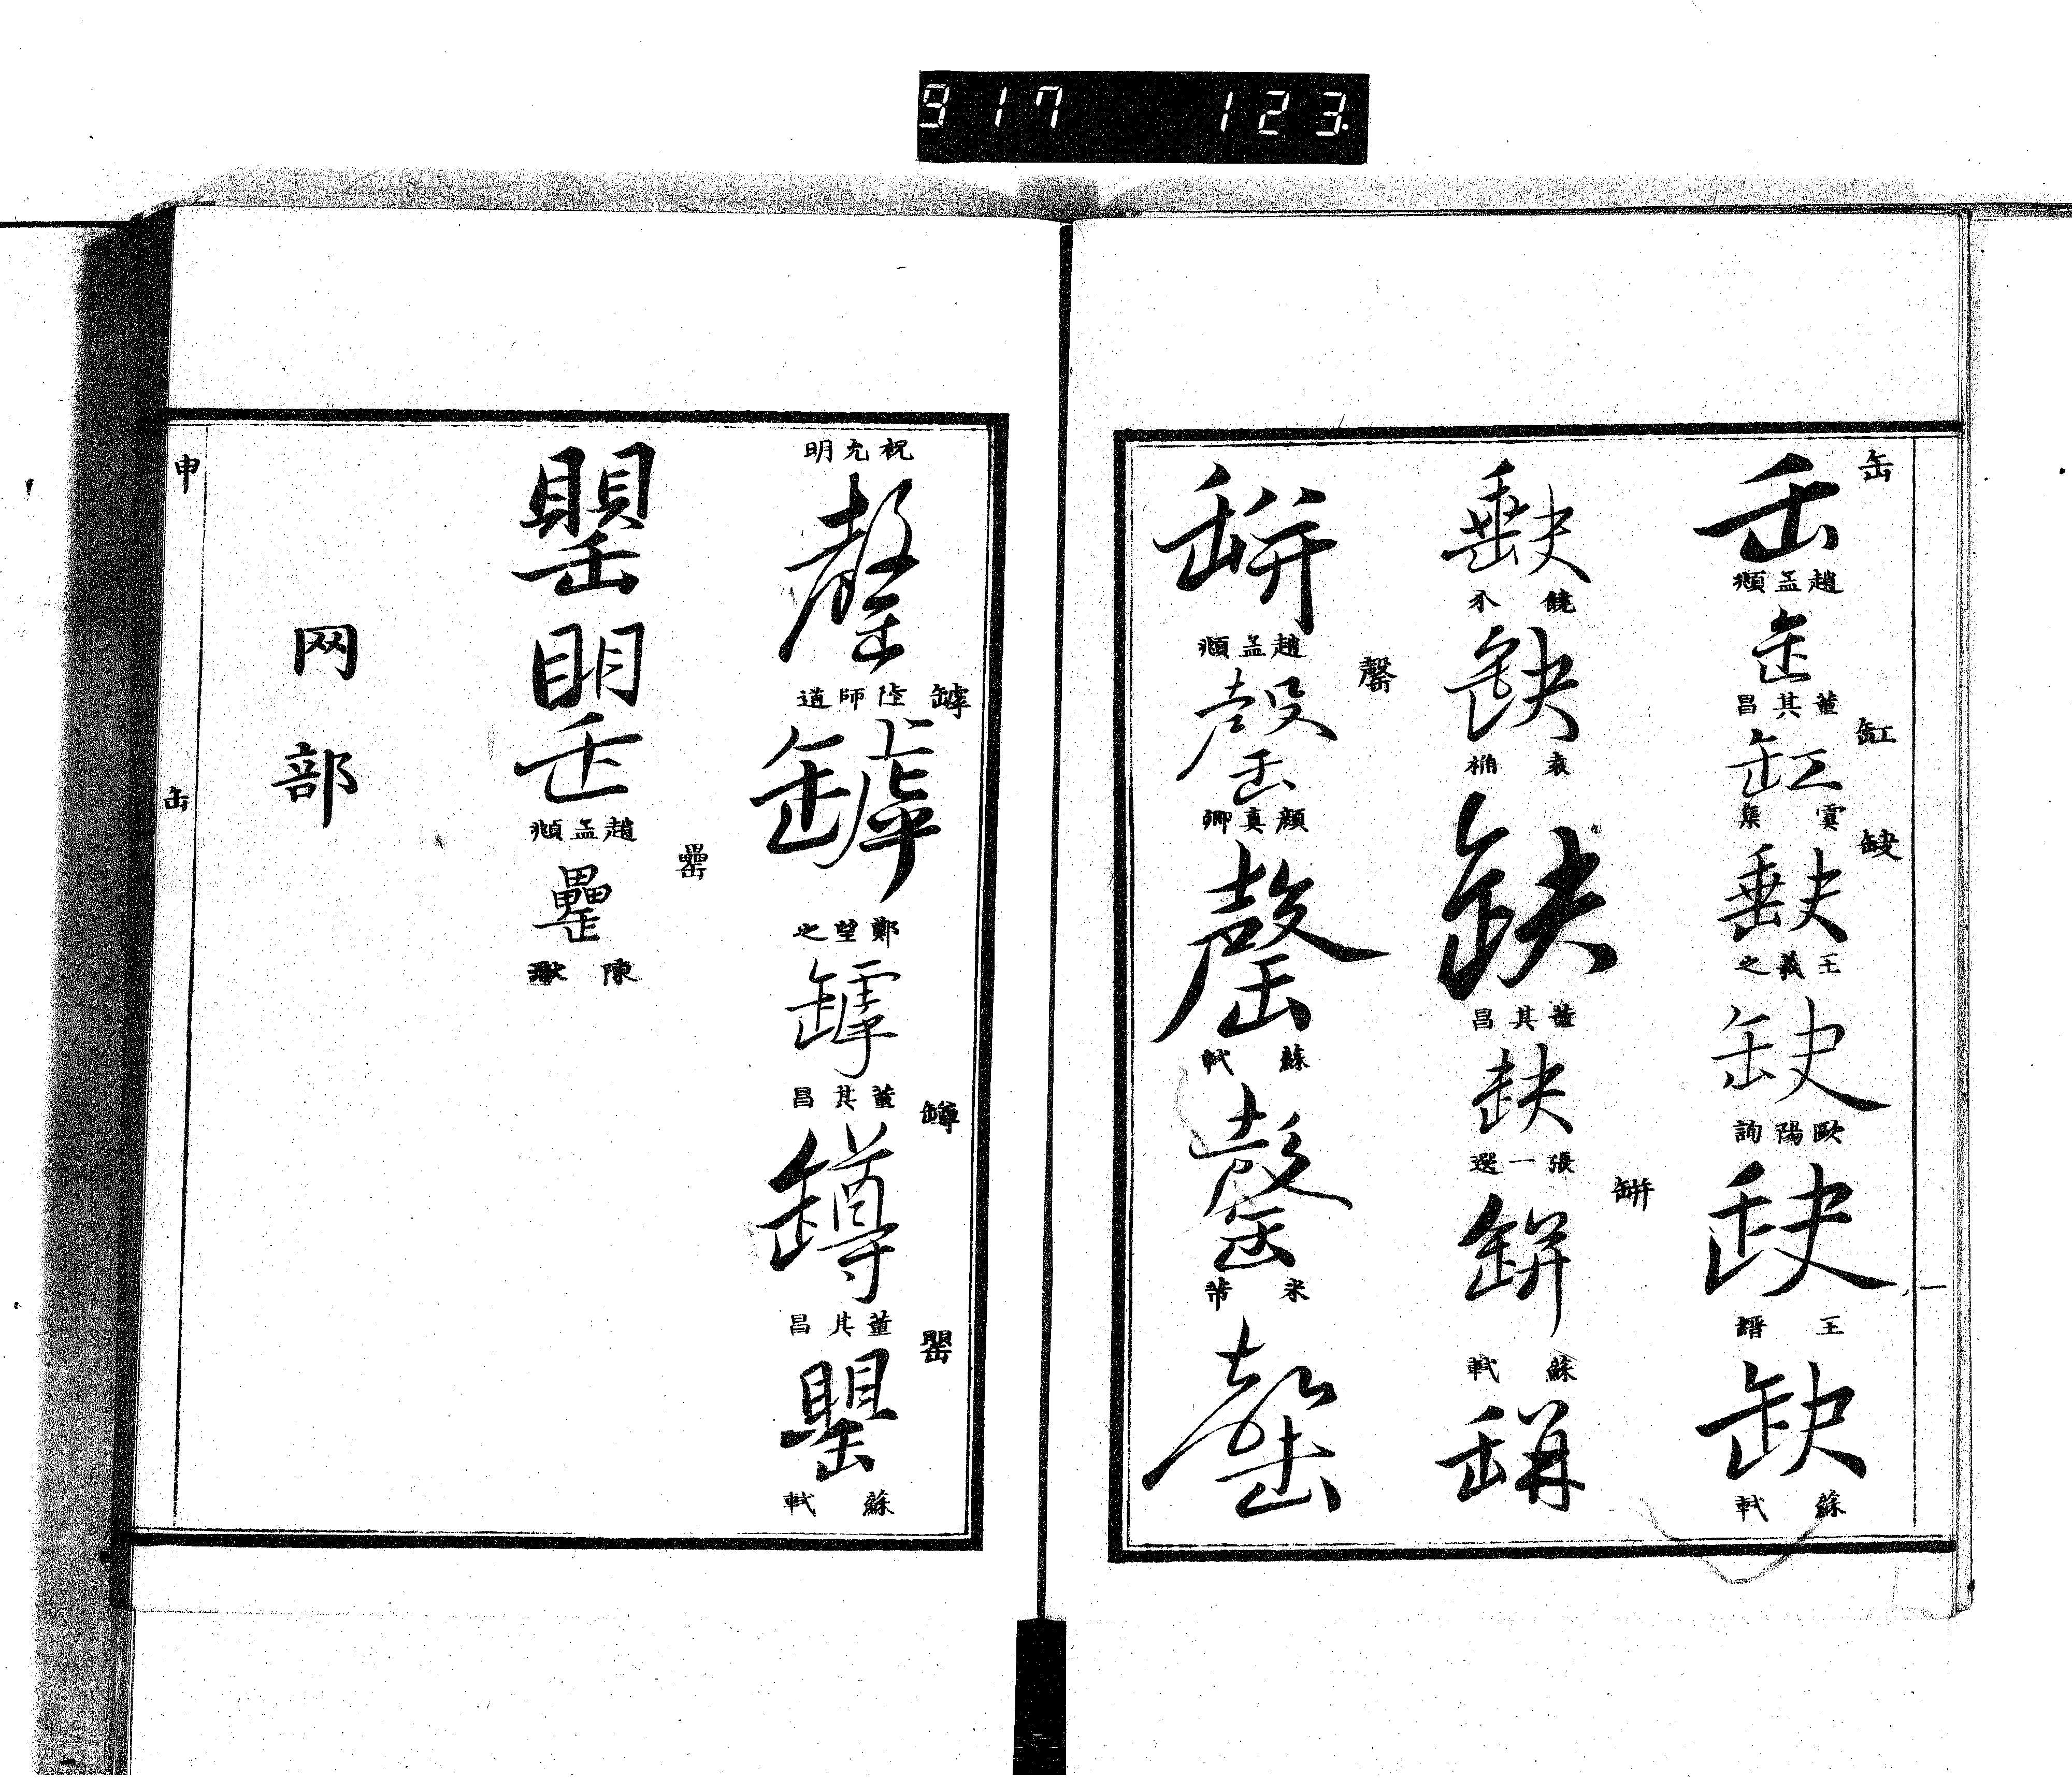 917 123
缶
缶
趙孟頫
缶
董其昌
缸
缸
虞集
缺
缺
王羲之
缺
歐陽詢
缺
王縉
缺
蘇軾
缺
饒介
缺
袁桷
缺
董其昌
缺
張一選
缾
缾
蘇軾
缾
缾
趙孟頫
罄
罄
顏真卿
罄
蘇軾
罄
米芾
罄
祝允明
罄
陸師道
罅
罅
鄭望之
罅
董其昌
罇
罇
董其昌
罌
罌
蘇軾
罌
罌
趙孟頫
罍
罍
陳
网部
申
缶